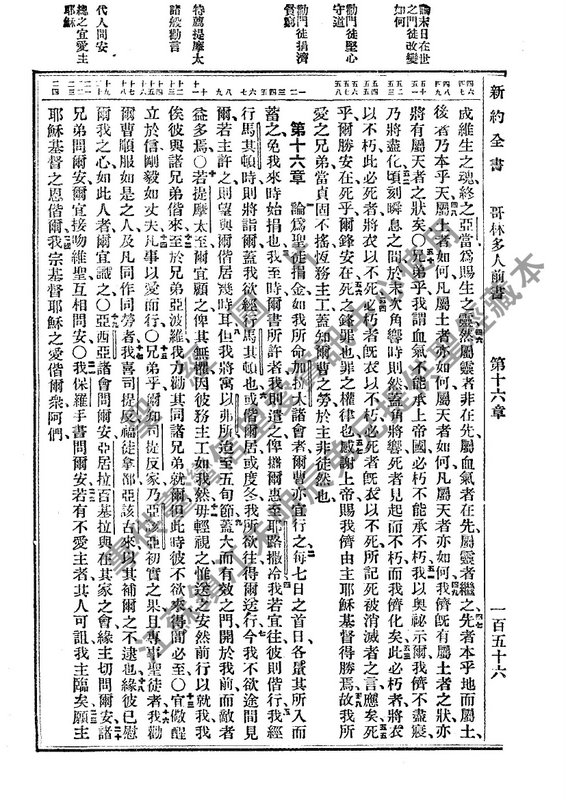 新約全書 哥林多人前書 第十六章 一百五十六
論末日在世
之門徒改變
如何
勸門徒堅心
守道
勸門徒捐濟
貧窮
特薦提摩太
諸般勸言
代人問安
總之宜愛主
耶穌
成維生之魂終之亞當為賜生之靈然屬靈者非在先屬血氣者在先屬靈者繼之先者本乎地而屬土
後者乃本乎天屬土者如何凡屬土者亦如何屬天者如何凡屬天者亦如何我儕既有屬土者之狀亦
將有屬天者之狀矣〇兄弟乎我謂血氣不能承上帝國必朽不能承不朽我以奧祕示爾我儕不盡寢
乃將盡化頃刻瞬息之間於末次角響時則然蓋角將響死者見起而不朽而我儕化矣此必朽者將衣
以不朽此必死者將衣以不死必朽者既衣以不朽必死者既衣以不死所記死被消滅者之言應矣死
乎爾勝安在死乎爾鋒安在死之鋒罪也罪之權律也感謝上帝賜我儕由主耶穌基督得勝焉故我所
愛之兄弟當貞固不搖恆務主工蓋知爾曹之勞於主非徒然也
第十六章 論為聖徒捐金如我所命加拉太諸會者爾曹亦宜行之每七日之首日各量其所入而
蓄之免我來時始捐也我至時爾書所許者我則遣之俾攜爾惠至耶路撒冷我若宜往彼則偕行我經
行馬其頓時則將詣爾蓋我欲經行馬其頓也或偕爾居或度冬我所欲往得爾送行今我不欲途間見
爾若主許之則望與爾偕居幾時耳但我將寓以弗所迨至五旬節蓋大而有效之門開於我前而敵者
益多焉〇若提摩太至爾宜顧之俾其無懼因彼務主工如我然毋輕視之惟送之安然前行以就我我
俟彼與諸兄弟偕來至於兄弟亞波羅我力勸其同諸兄弟就爾但此時彼不欲來得間必至〇宜儆醒
立於信剛毅如丈夫凡事以愛而行〇兄弟乎爾知司提反家乃亞該亞初實之果且專事聖徒者我勸
爾曹順服如是之人及凡同作同勞者我喜司提反福徒拿都亞該古來以其補爾之不逮也緣彼已慰
爾我之心如此人者爾宜識之〇亞西亞諸會問爾安亞居拉百基拉與在其家之會緣主切問爾安諸
兄弟問爾安爾宜接吻維聖互相問安〇我保羅手書問爾安若有不愛主者其人可詛我主臨矣願主
耶穌基督之恩偕爾我宗基督耶穌之愛偕爾眾阿們